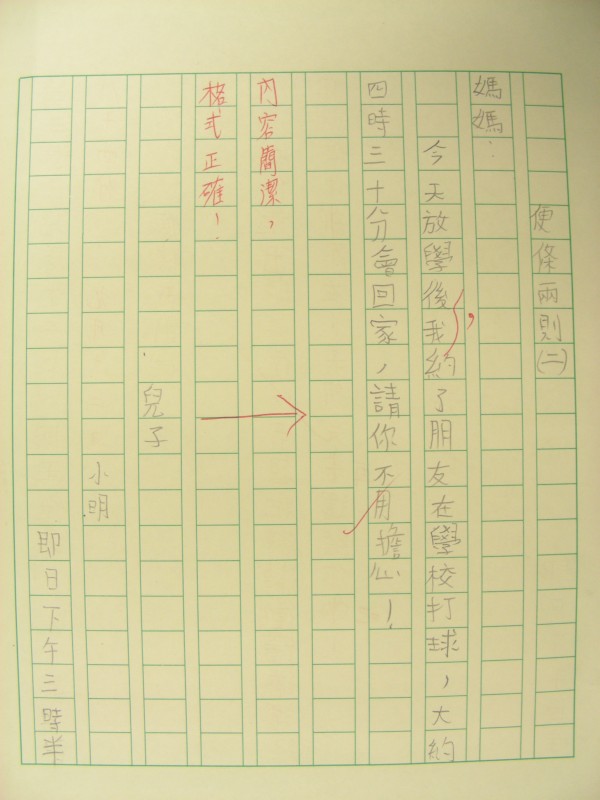 便條兩則(二)
媽媽：
今天放學後我約了朋友在學校打球，大約
四時三十分會回家，請你不用擔心！
內容簡潔，
格式正確！
兒子
小明
即日下午三時半